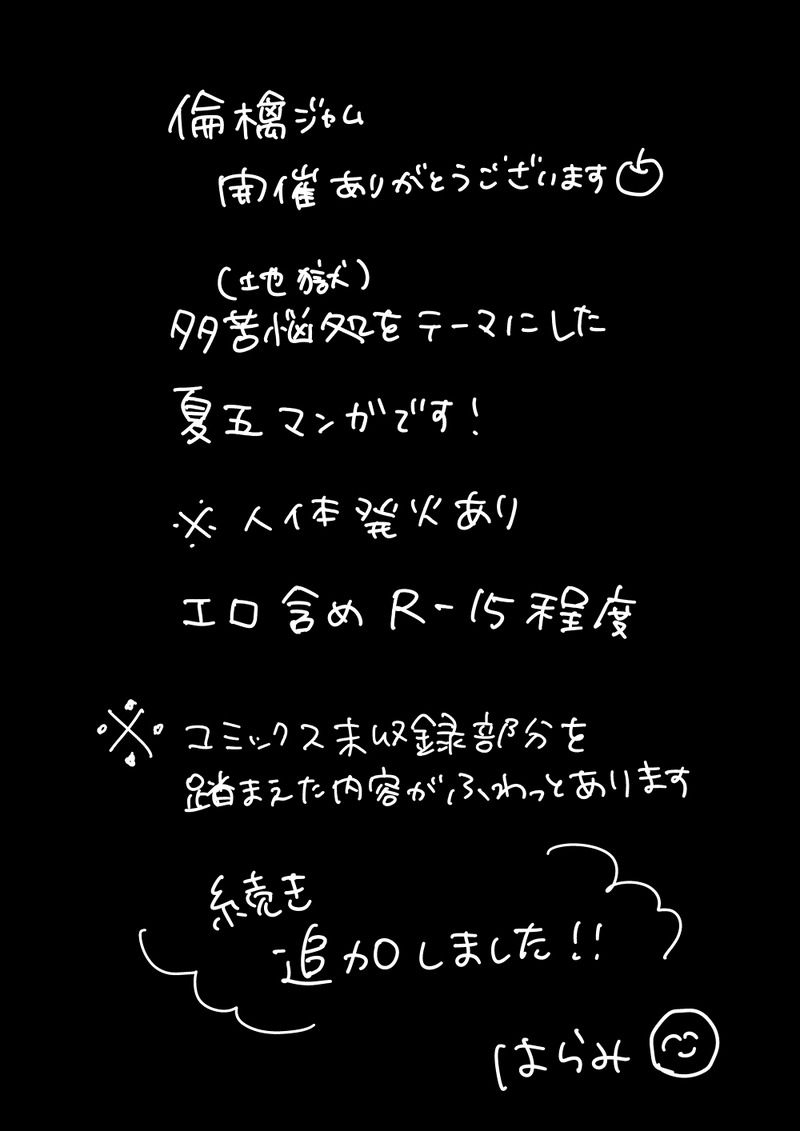 倫檎ジャム
開催ありがとうございます
(地獄)
多苦悩処をテーマにした
夏五マンガです!
※人体発火あり
エロ含めR-15程度
※コミックス未収録部分を
踏まえた内容がふわっとあります
続き
追加しました!!
はらみ